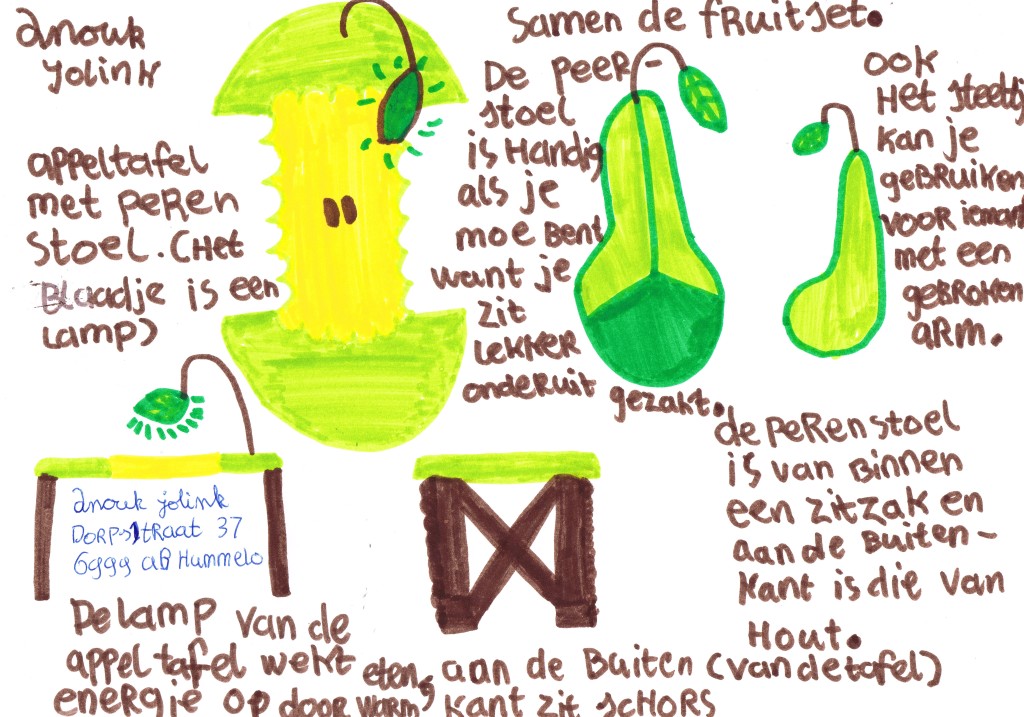 anouk
jolink
appeltafel
met peren
stoel. (Het
Blaadje is een
lamp)
samen de fruitset.
De peer-
stoel
is Handig
als je
moe Bent
want je
zit
lekker
onderuit gezakt.
ook
Het steeltje
kan je
geBruiken
voor iemant
met een
geBroken
arm.
de perenstoel
is van Binnen
een zitzak en
aan de Buiten-
kant is die van
Hout.
anouk jolink
Dorpsstraat 37
6999 aB Hummelo
De lamp van de
appeltafel wekt eten,
energie op door warm
aan de Buiten (van de tafel)
kant zit schors